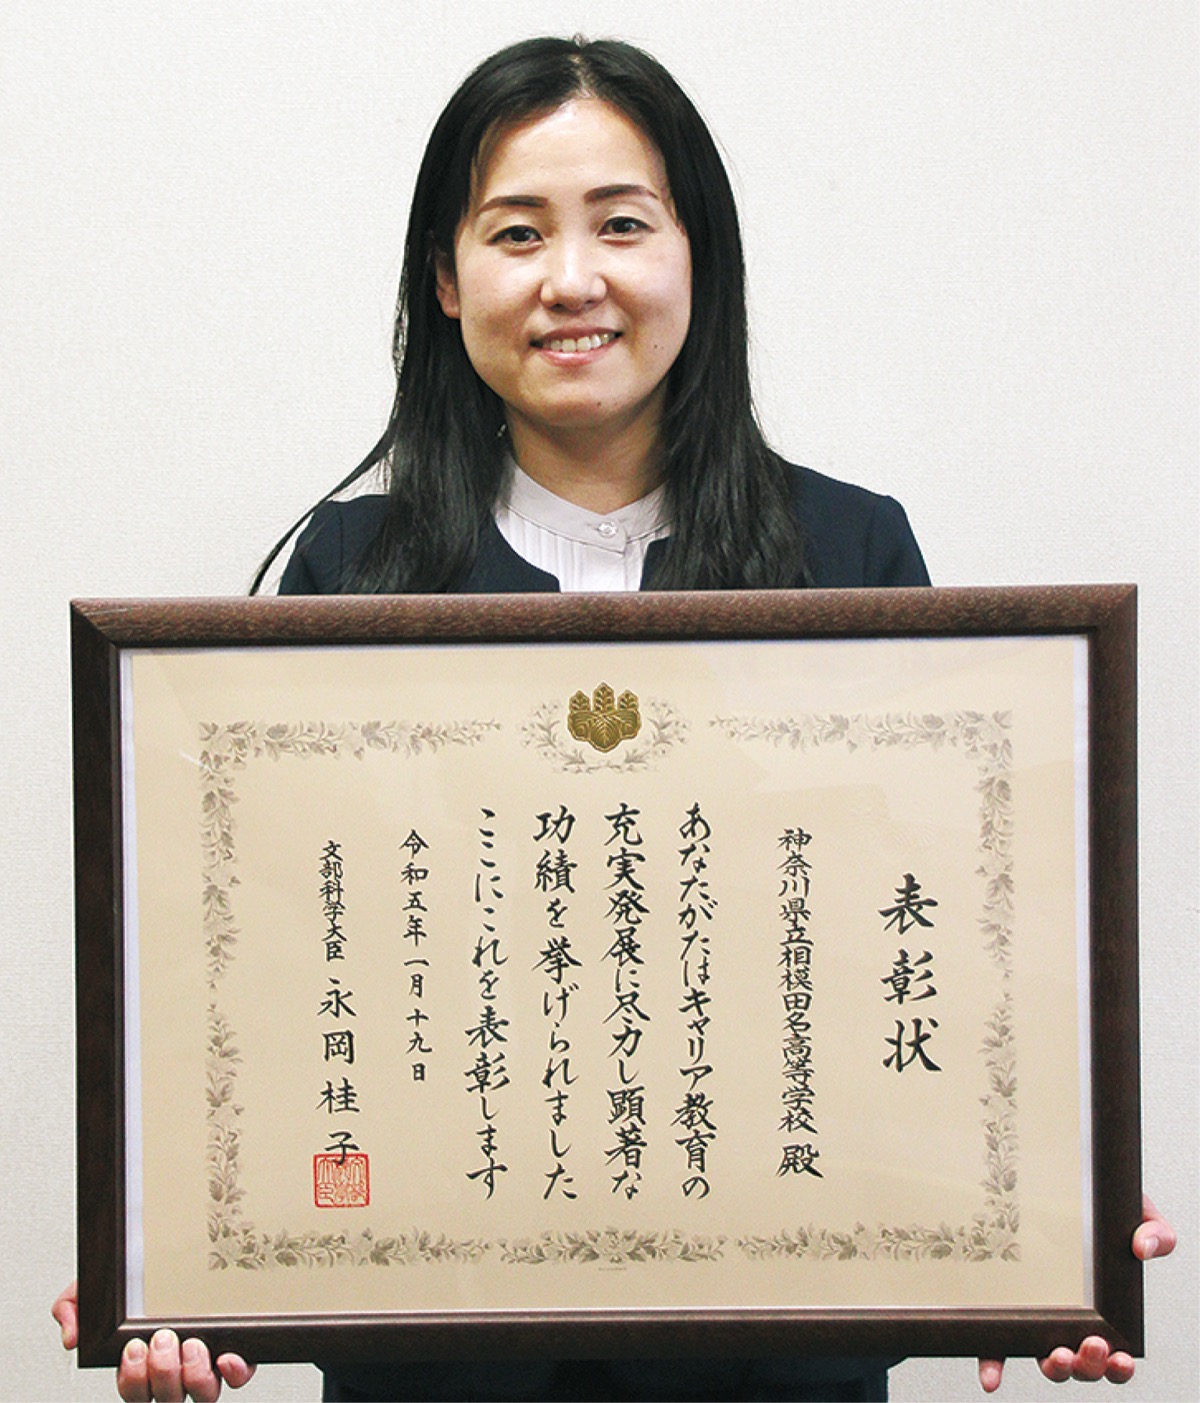 表彰状
神奈川県立相模田名高等学校 殿
あなたがたはキャリア教育の
充実発展に尽力し顕著な
功績を挙げられました
ここにこれを表彰します
令和五年一月十九日
文部科学大臣 永岡桂子